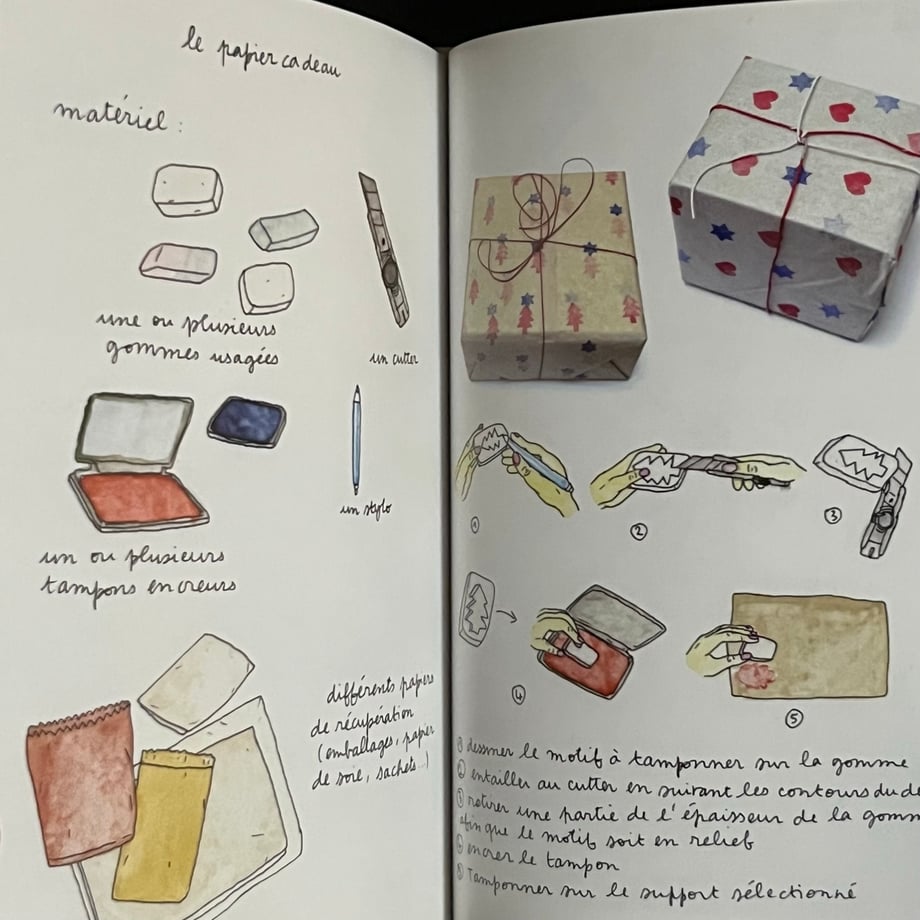 le papier cadeau
matériel :
une ou plusieurs
gommes usagées
un cutter
un ou plusieurs
tampons encreurs
un stylo
différents papiers
de récupération
(emballages, papier
de soie, sachets...)
①
②
③
④
⑤
① dessiner le motif à tamponner sur la gomme
② entailler au cutter en suivant les contours du de
③ retirer une partie de l'épaisseur de la gomm
afin que le motif soit en relief
④ encrer le tampon
⑤ tamponner sur le support sélectionné